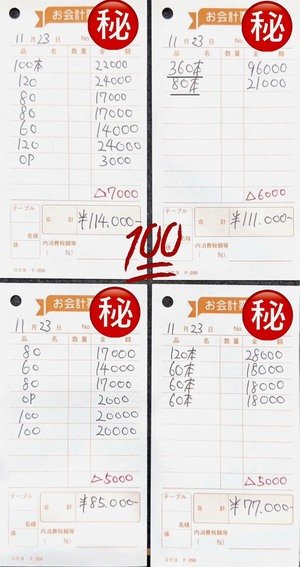 お会計票
㊙
11月23日 No.
品 名 数量 金 額
100本 22000
120 24000
80 17000
80 17000
60 14000
120 24000
OP 3000
△7000
テーブル
合 計 ¥114.000-
名様
内消費税額等
係 ( %)
コクヨ テ-250
お会計票
㊙
11月23日 No.
品 名 数量 金 額
360本 96000
80本 21000
△6000
テーブル
合 計 ¥111.000-
名様
内消費税額等
係 ( %)
コクヨ テ-250
100
お会計票
㊙
11月23日 No.
品 名 数量 金 額
80 17000
60 14000
80 17000
OP 2000
100 20000
100 20000
△5000
テーブル
合 計 ¥85.000-
名様
内消費税額等
係 ( %)
コクヨ テ-250
お会計票
㊙
11月23日 No.
品 名 数量 金 額
120本 28000
60本 18000
60本 18000
60本 18000
△5000
テーブル
合 計 ¥77.000-
名様
内消費税額等
係 ( %)
コクヨ テ-250